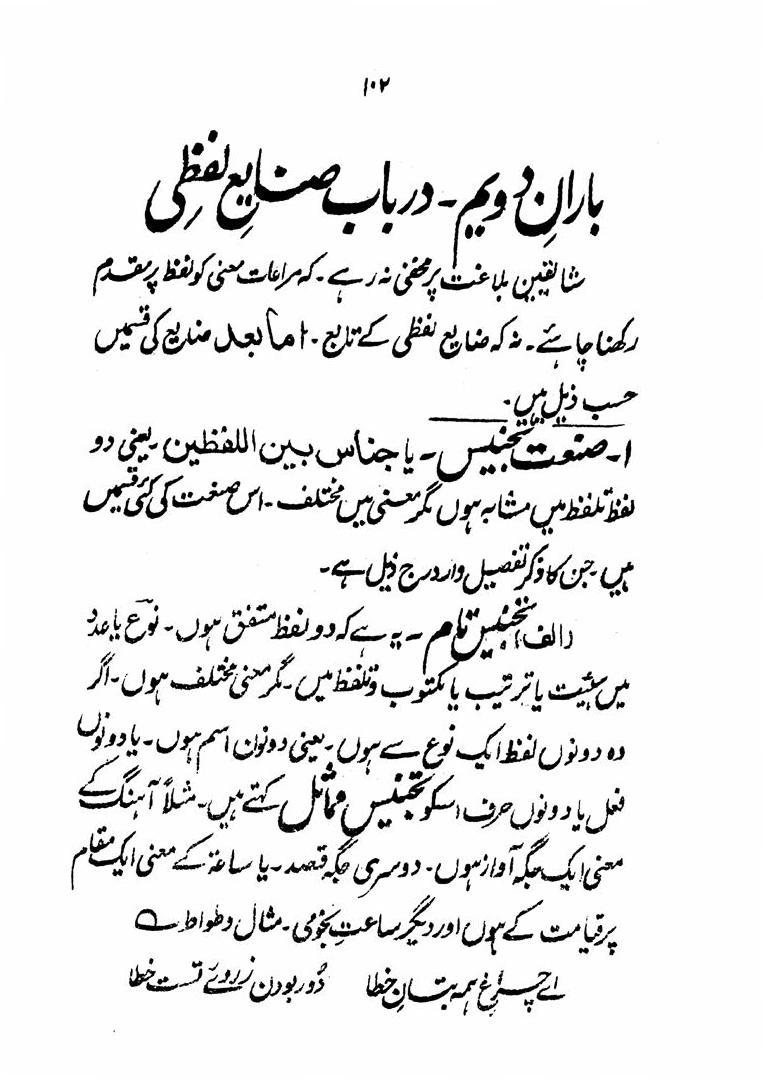 ۱۰۲
بارانِ دویم۔ در باب صنایعِ لفظِی
شایقینِ بلاغت پر مخفی نہ رہے۔ کہ مراعات معنی کو لفظ پر مقدم
رکھنا چاہئے۔ نہ کہ صنایع لفظی کے تابع۔ اما بعد صنایع کی قسمیں
حسب ذیل ہیں۔
۱۔ صنعت تجنیس۔ یا جناس بین اللفظین یعنی دو
لفظ تلفظ میں مشابہ ہوں مگر معنی میں مختلف۔ اس صنعت کی کئی قسمیں
ہیں جن کا ذکر تفصیل وار درج ذیل ہے۔
(الف) تجنیس تام۔ یہ ہے کہ دو لفظ متفق ہوں۔ نوع یا عدد
میں ہئیت یا ترتیب یا مکتوب و تلفظ میں۔ مگر معنی مختلف ہوں۔ اگر
وہ دونوں لفظ ایک نوع سے ہوں۔ یعنی دونوں اسم ہوں۔ یا دونوں
فعل یا دونوں حرف اسکو تجنیس مماثل کہتے ہیں۔ مثلاً آہنگ کے
معنی ایک جگہ آواز ہوں۔ دوسری جگہ قصد۔ یا ساعة کے معنی ایک مقام
پر قیامت کے ہوں اور دیگر ساعتِ نجومی۔ مثال وطواط ؎
اے چراغِ ہمہ بتانِ خطا دُور بودن ز روے تست خطا